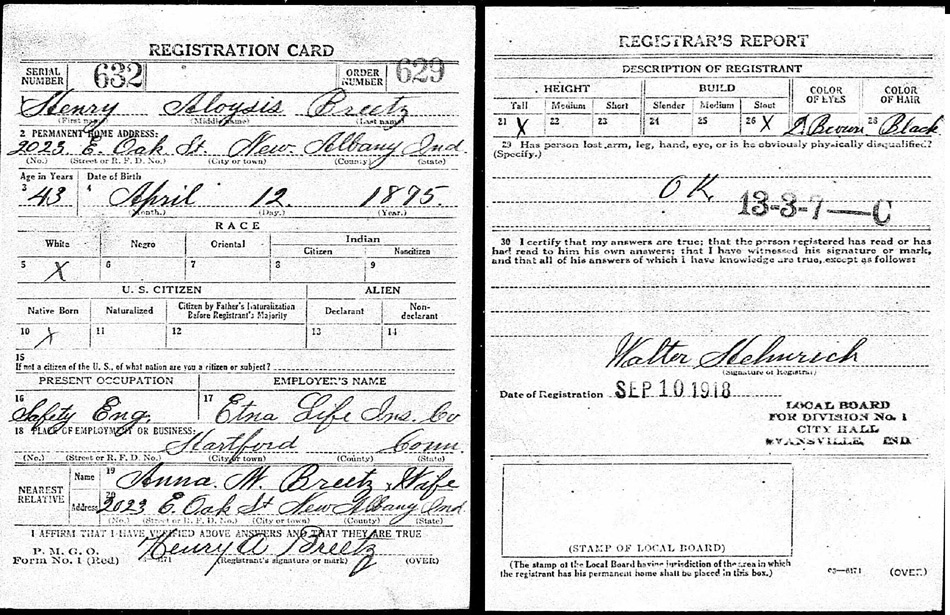 REGISTRATION CARD
SERIAL NUMBER 632 ORDER NUMBER 629
Henry Aloysis Breetz
(First name) (Middle name) (Last name)
2 PERMANENT HOME ADDRESS:
2023 E. Oak St New Albany Ind
(No.) (Street or R. F. D. No.) (City or town) (County) (State)
Age in Years Date of Birth
3 43 4 April 12. 1895
(Month.) (Day.) (Year.)
RACE
White Negro Oriental Indian
Citizen Noncitizen
5 X 6 7 8 9
U. S. CITIZEN ALIEN
Native Born Naturalized Citizen by Father's Naturalization Before Registrant's Majority Declarant Non-declarant
10 X 11 12 13 14
15
If not a citizen of the U. S., of what nation are you a citizen or subject?
PRESENT OCCUPATION EMPLOYER'S NAME
16 Safety Eng. 17 Etna Life Ins. Co
18 PLACE OF EMPLOYMENT OR BUSINESS:
Hartford Conn.
(No.) (Street or R. F. D. No.) (City or town) (County) (State)
NEAREST RELATIVE
Name 19 Anna. M. Breetz, Wife
Address 20 2023 E. Oak St New Albany Ind
(No.) (Street or R. F. D. No.) (City or town) (County) (State)
I AFFIRM THAT I HAVE VERIFIED ABOVE ANSWERS AND THAT THEY ARE TRUE
P. M. G. O.
Form No. 1 (Red) Henry A Breetz
(Registrant's signature or mark) (OVER)
REGISTRAR'S REPORT
DESCRIPTION OF REGISTRANT
HEIGHT BUILD COLOR OF EYES COLOR OF HAIR
Tall Medium Short Slender Medium Stout
21 X 22 23 24 25 26 X D. Brown 28 Black
29 Has person lost arm, leg, hand, eye, or is he obviously physically disqualified?
(Specify.)
O K.
13-3-7—C
30 I certify that my answers are true; that the person registered has read or has
had read to him his own answers; that I have witnessed his signature or mark,
and that all of his answers of which I have knowledge are true, except as follows:
Walter Helmrich
(Signature of Registrar)
Date of Registration SEP 10 1918
LOCAL BOARD
FOR DIVISION No. 1
CITY HALL
EVANSVILLE, IND.
(STAMP OF LOCAL BOARD)
(The stamp of the Local Board having jurisdiction of the area in which
the registrant has his permanent home shall be placed in this box.)
03—6171 (OVER)